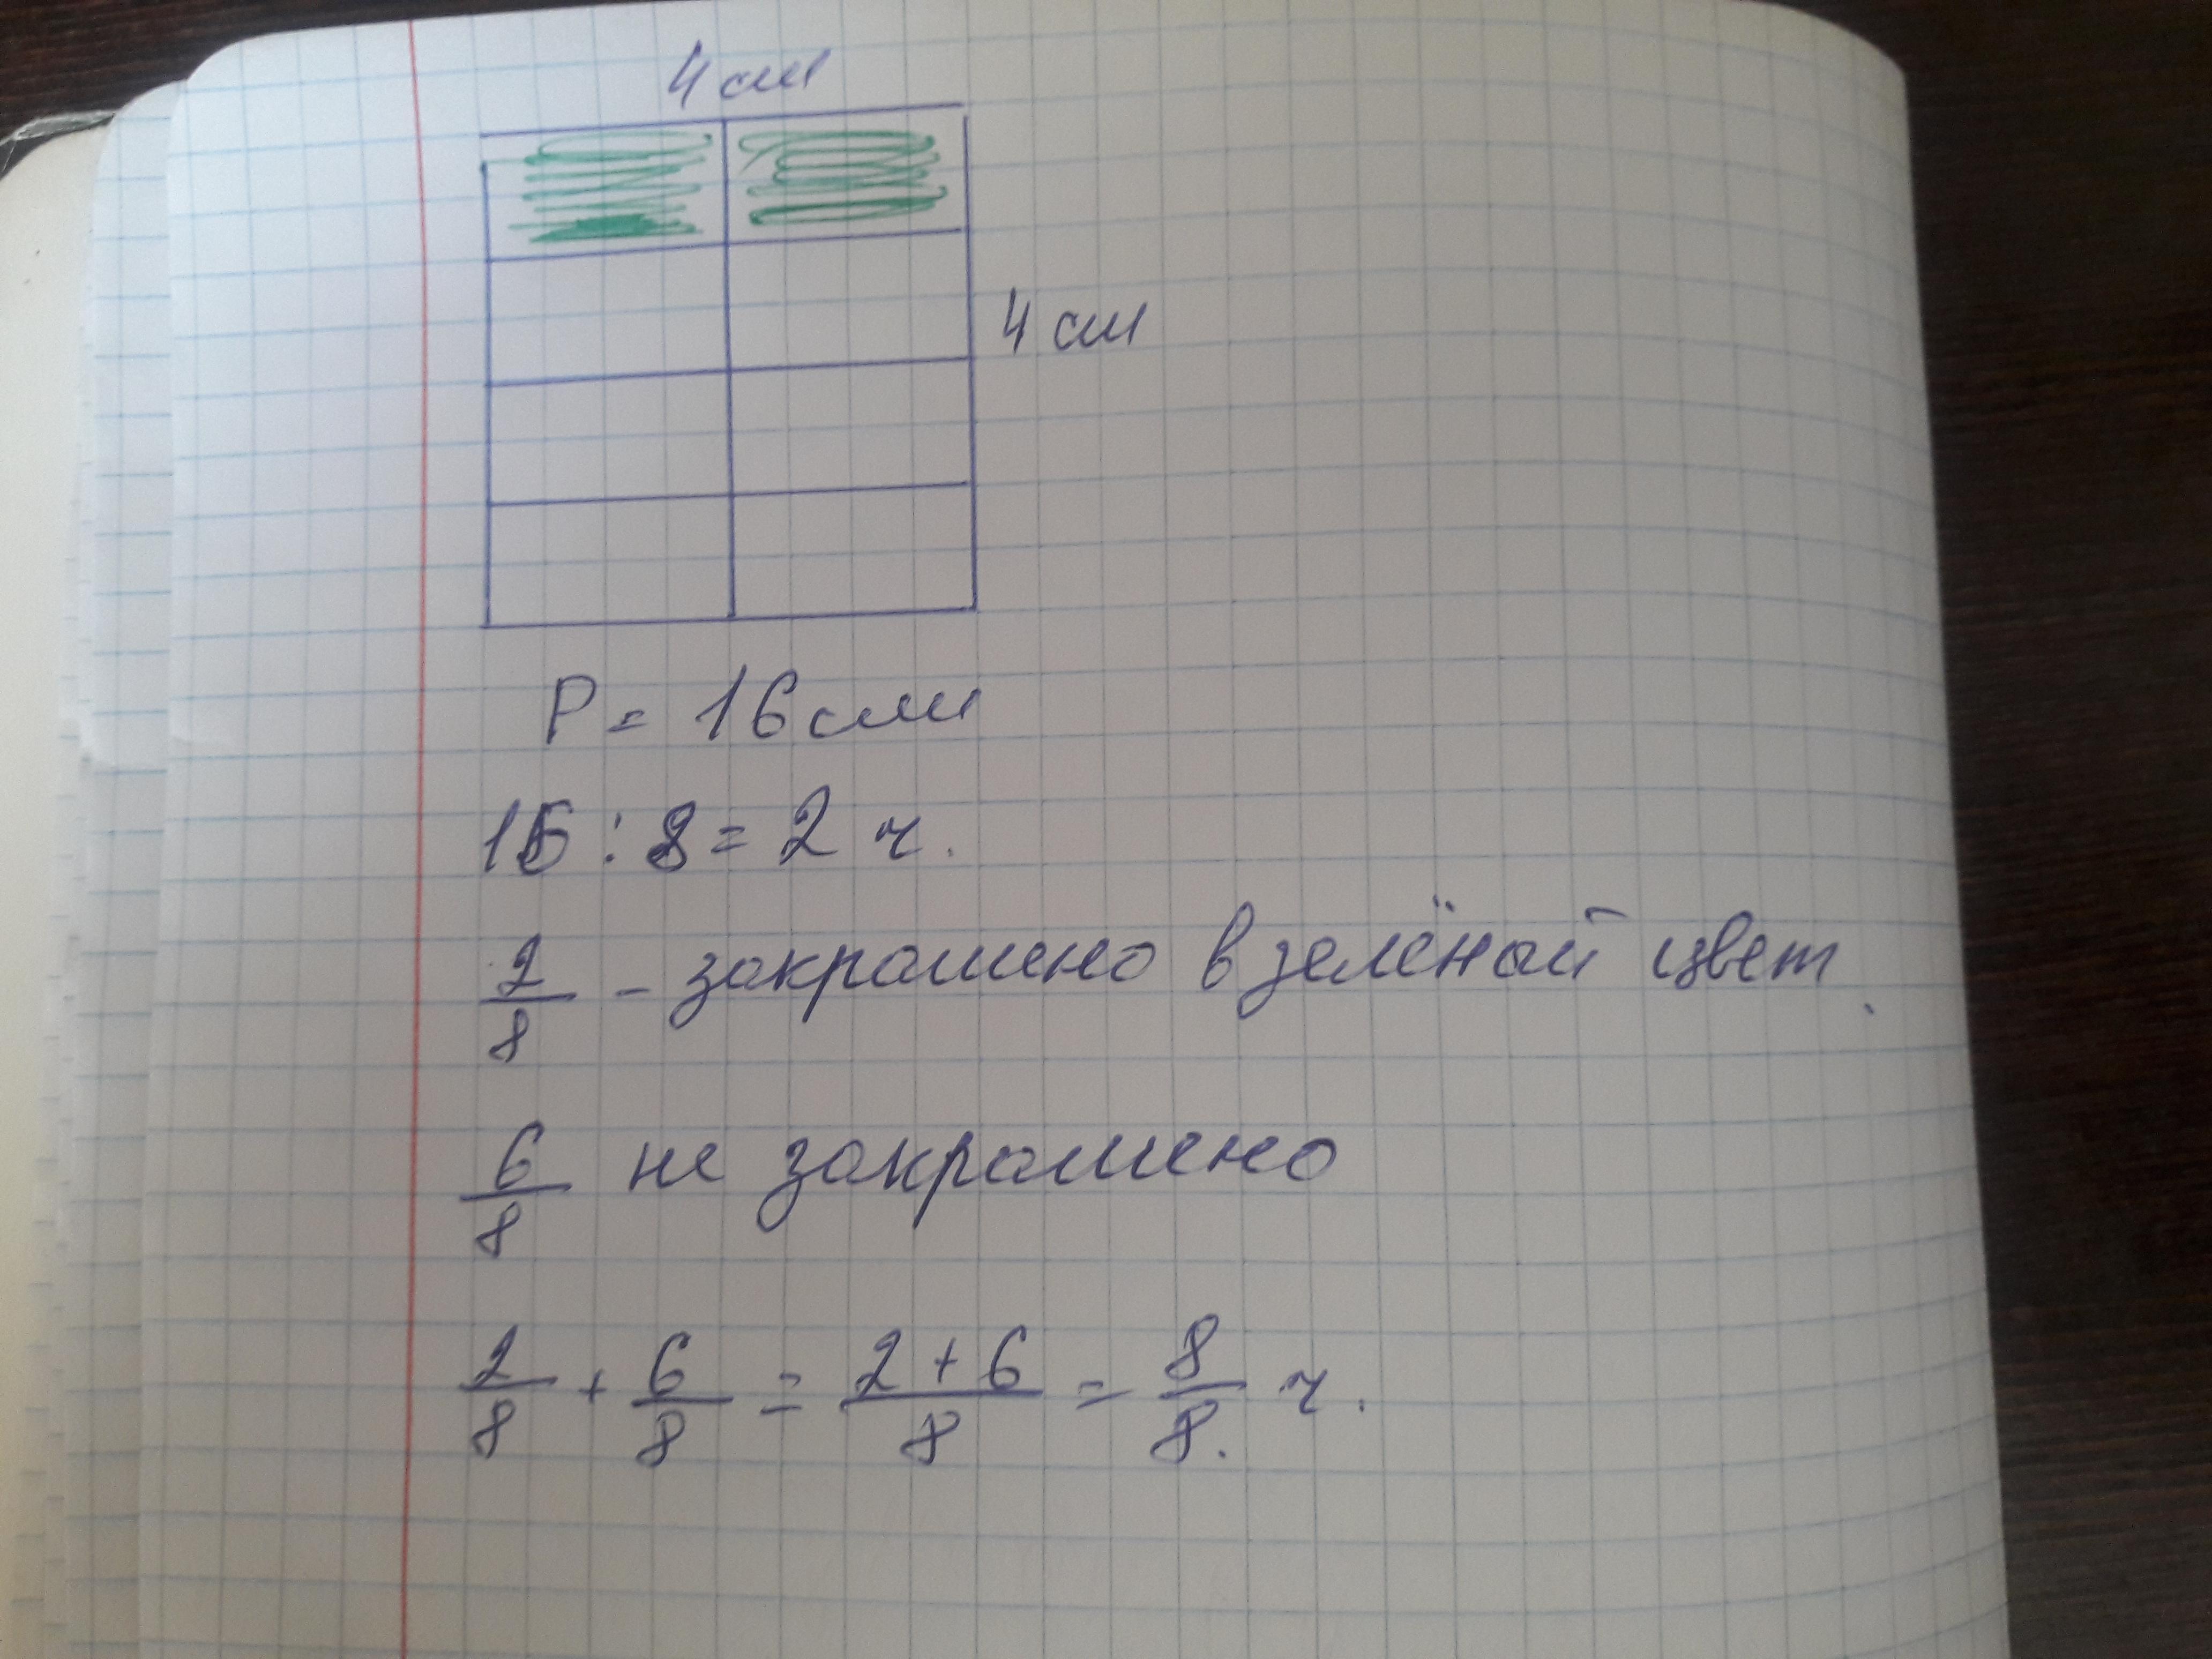 4 см
4 см
P = 16 см
16 : 8 = 2 ч.
2/8 - закрашено в зелёный цвет.
6/8 не закрашено
2/8 + 6/8 = 2 + 6/8 = 8/8. ч.